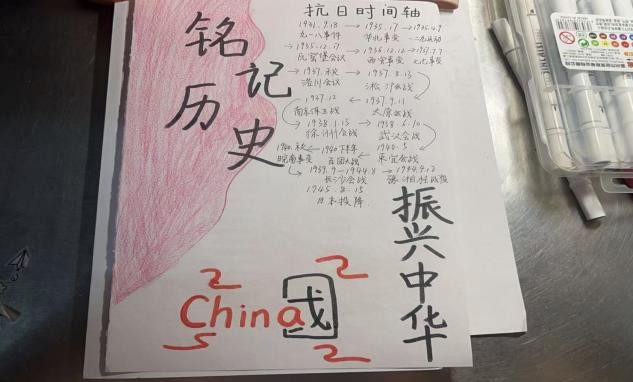 铭记
历史
抗日时间轴
1931.9.18 → 1935.17 → 1935.12.9
九一八事件 华北事变 一二九运动
→ 1935.12.17 → 1936.12.12 → 1937.7.7
瓦窑堡会议 西安事变 七七事变
→ 1937.秋 → 1937.8.13
洛川会议 淞沪会战
1937.12 ← 1937.9.11
南京保卫战 太原会战
→ 1938.1.15 → 1938.6.10
徐州会战 武汉会战
1940下半年 ← 1940.5
皖南事变 百团大战 枣宜会战
→ 1939.9-1944.8 → 1944.4.12
长沙会战
1945.8.15
日本投降
振兴中华
China